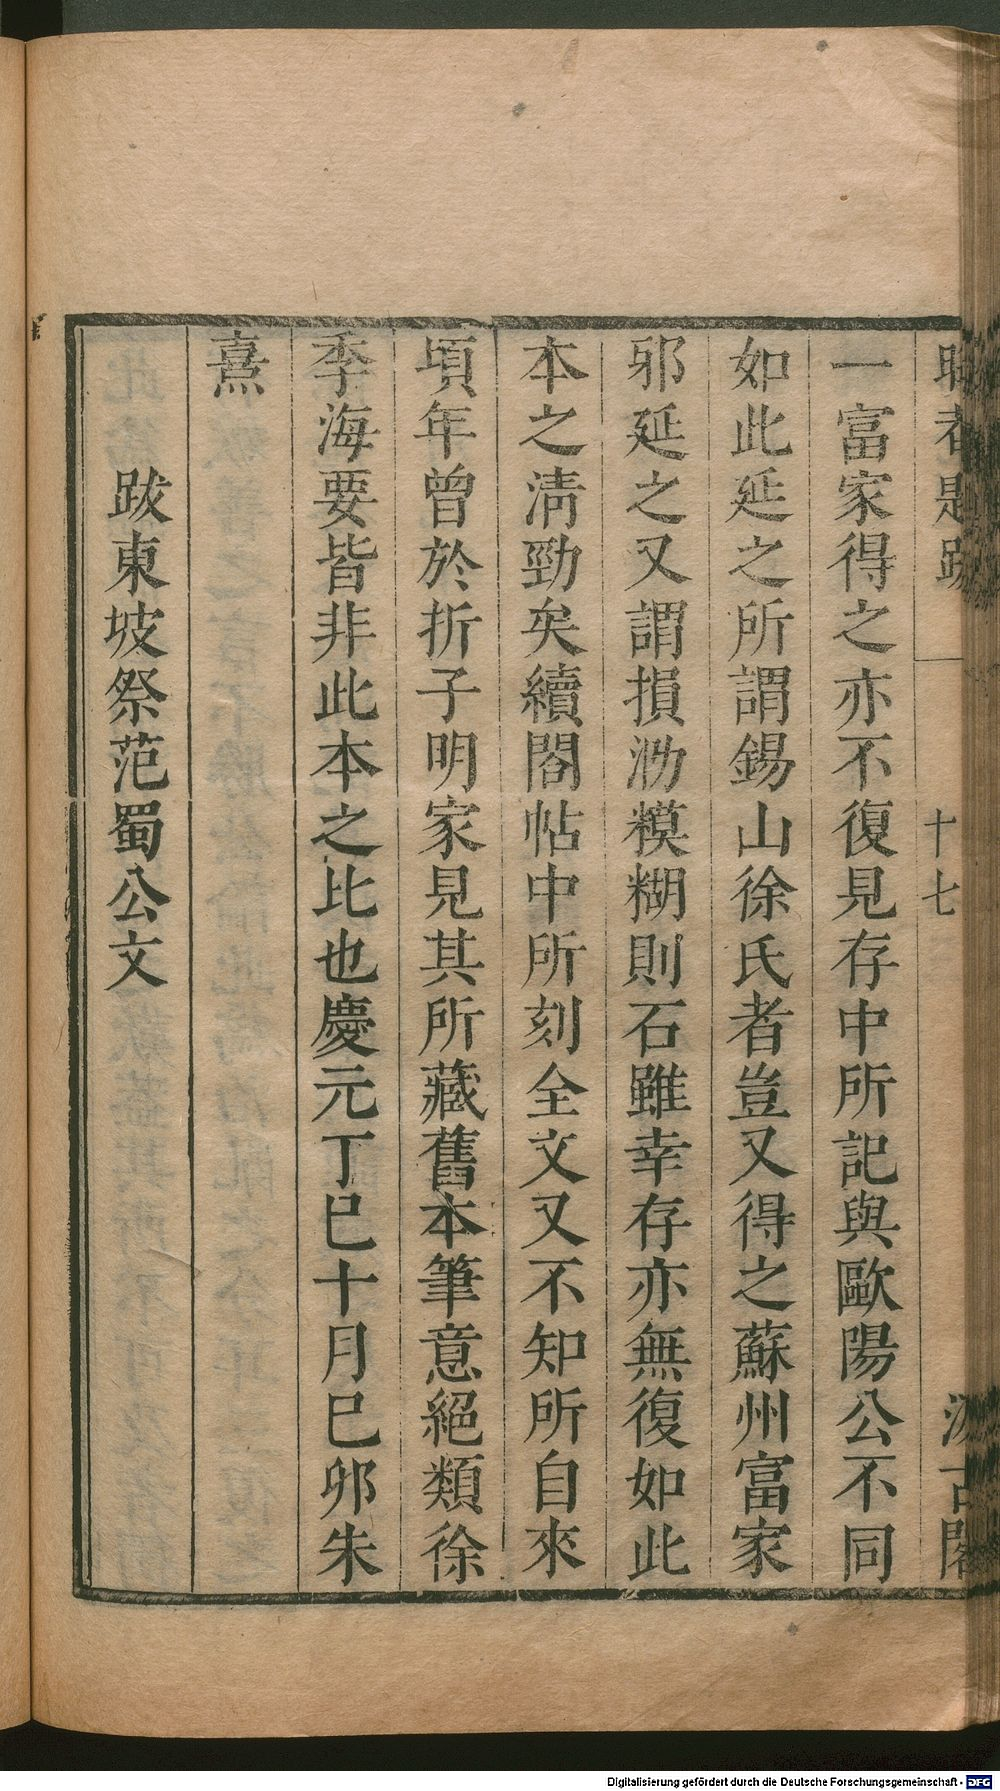 晦菴題跋
十七
汲古閣
一富家得之亦不復見存中所記與歐陽公不同
如此延之所謂錫山徐氏者豈又得之蘇州富家
邪延之又謂損泐糢糊則石雖幸存亦無復如此
本之淸勁矣續閣帖中所刻全文又不知所自來
頃年曾於折子明家見其所藏舊本筆意絕類徐
季海要皆非此本之比也慶元丁巳十月巳卯朱
熹
跋東坡祭范蜀公文
Digitalisierung gefördert durch die Deutsche Forschungsgemeinschaft - DFG